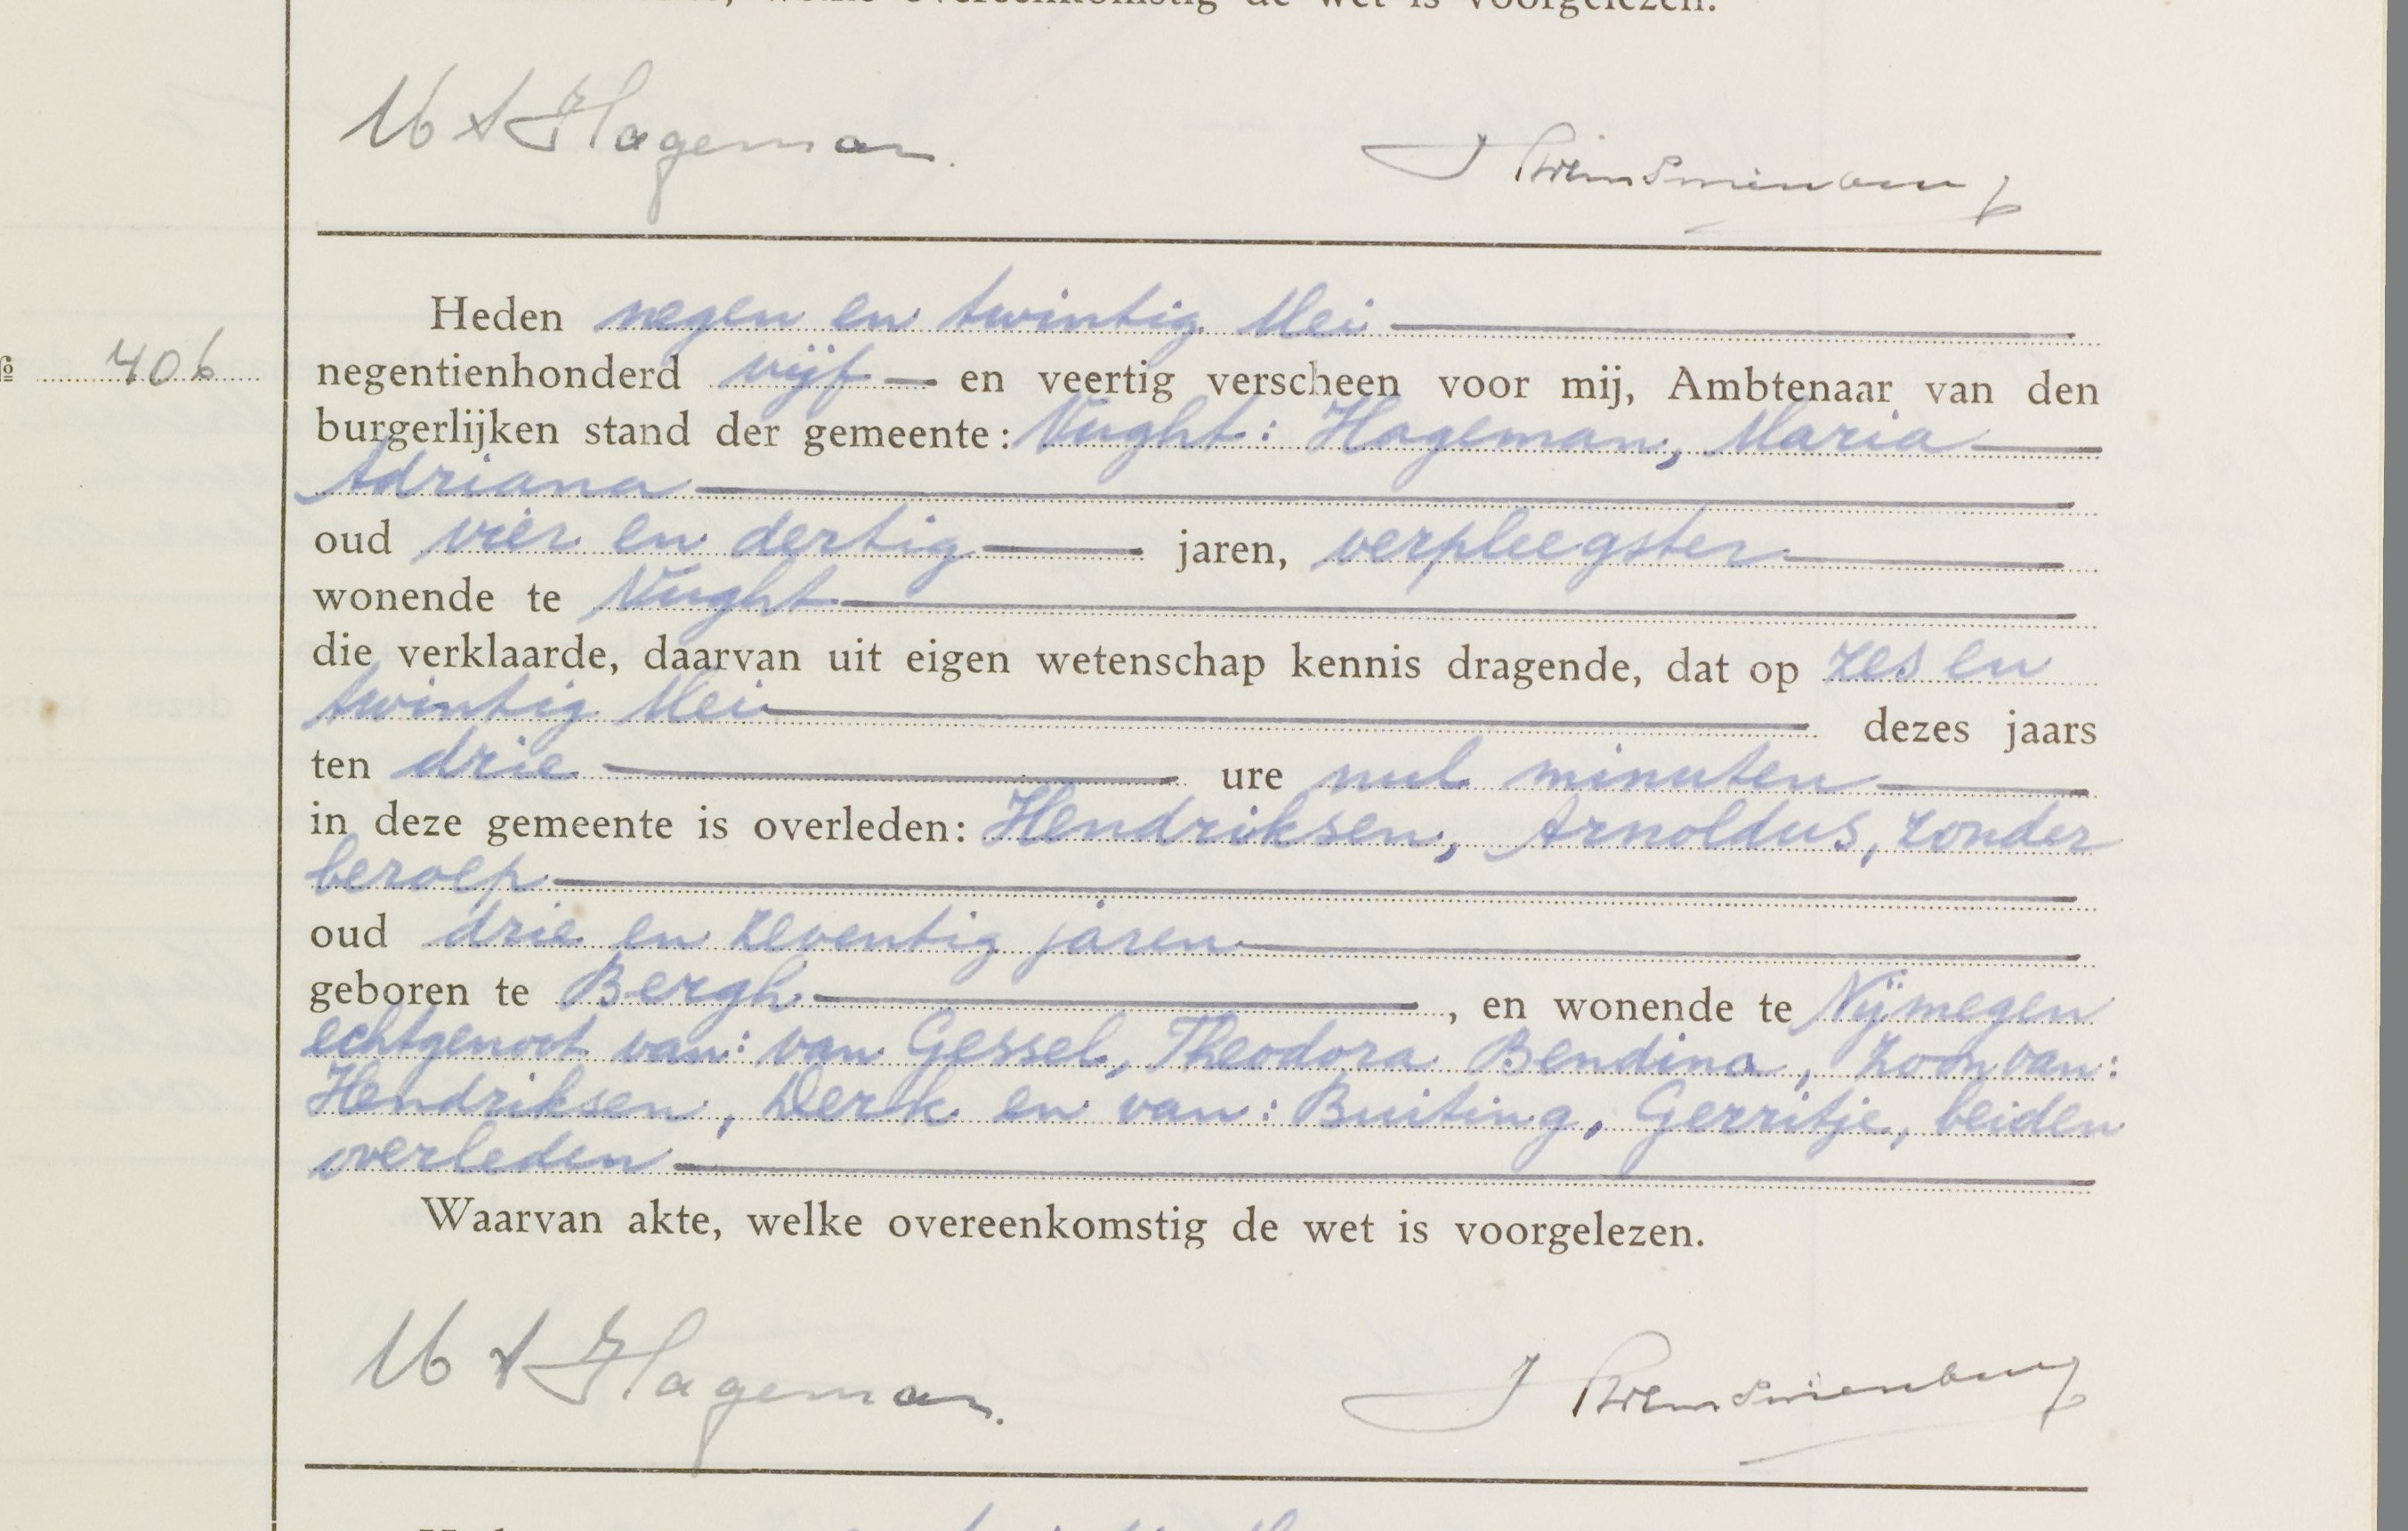 akte, welke overeenkomstig de wet is voorgelezen.
M A Hageman.
Heden negen en twintig Mei
№ 406
negentienhonderd vijf — en veertig verscheen voor mij, Ambtenaar van den
burgerlijken stand der gemeente: Vught: Hageman, Maria
Adriana
oud vier en dertig jaren, verpleegster
wonende te Vught
die verklaarde, daarvan uit eigen wetenschap kennis dragende, dat op zes en
twintig Mei dezes jaars
ten drie ure nul minuten
in deze gemeente is overleden: Hendriksen, Arnoldus, zonder
beroep
oud drie en zeventig jaren
geboren te Bergh, en wonende te Nijmegen
echtgenoot van: van Gessel, Theodora Bendina, zoon van:
Hendriksen, Derk en van: Buiting, Gerritje, beiden
overleden
Waarvan akte, welke overeenkomstig de wet is voorgelezen.
M A Hageman.